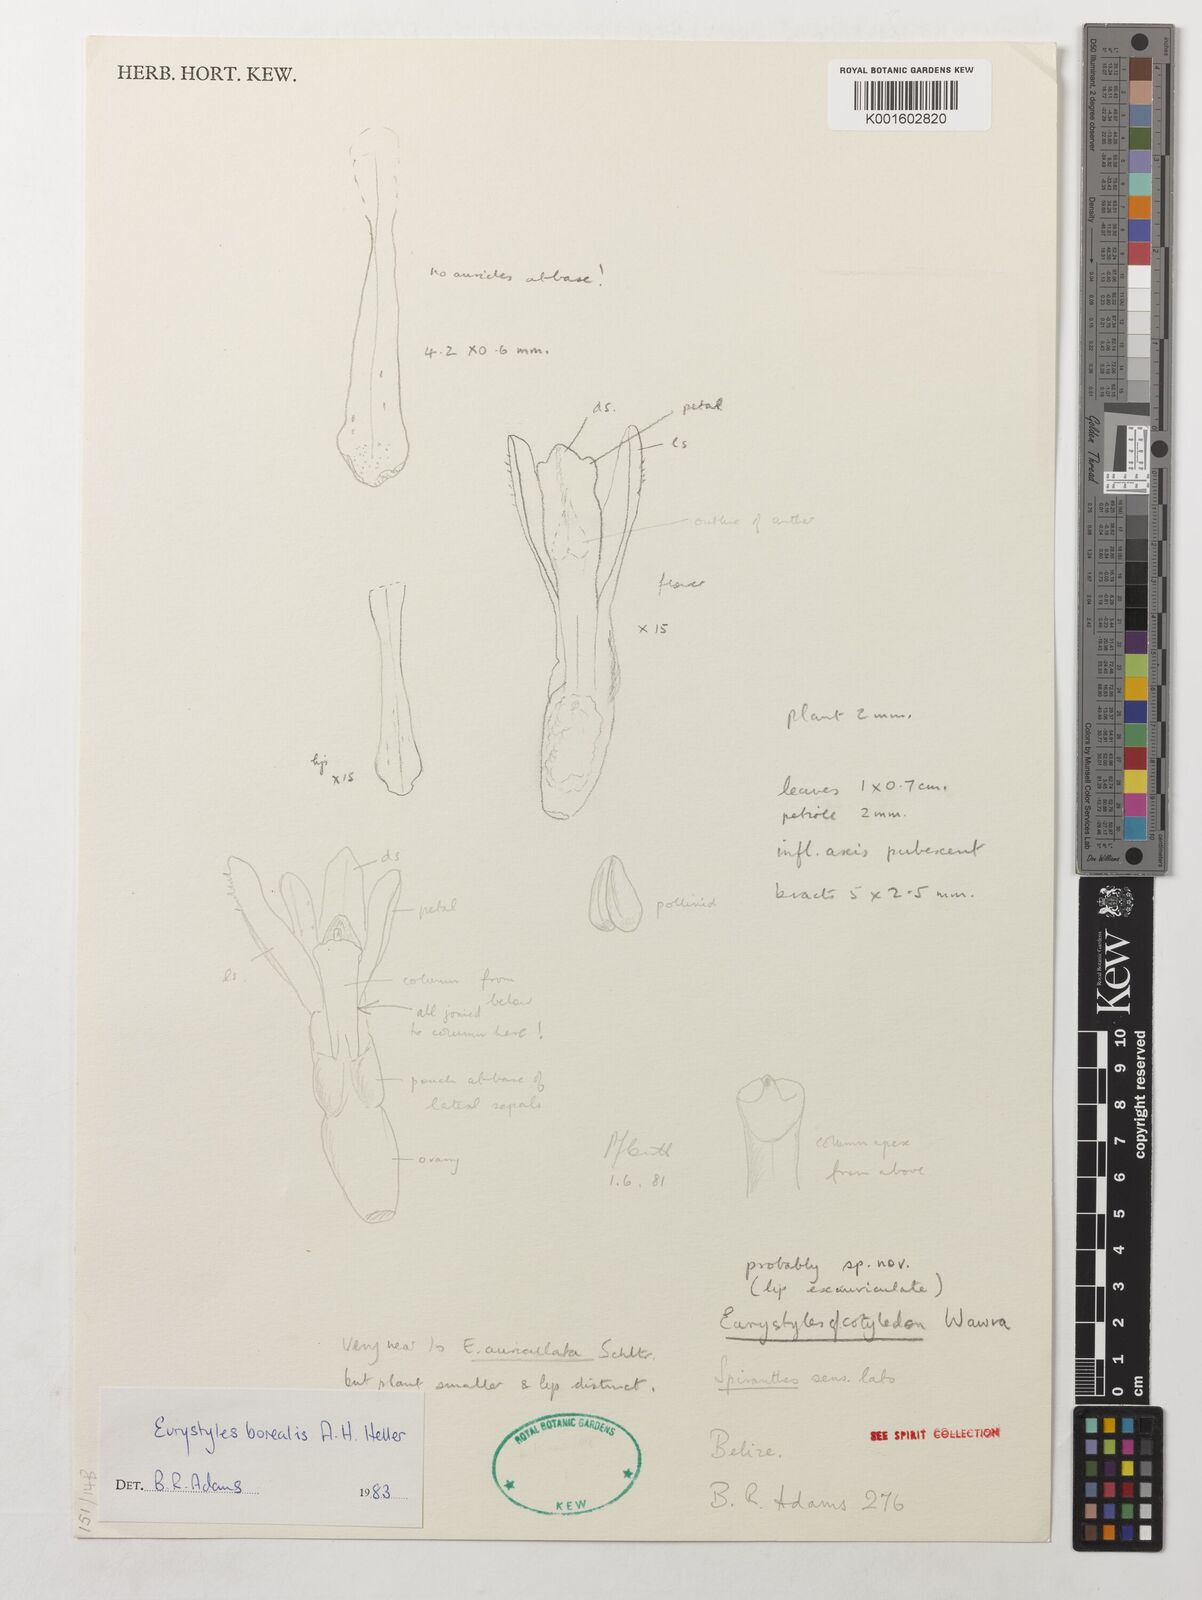 HERB. HORT. KEW.
ROYAL BOTANIC GARDENS KEW
K001602820
no auricles at base!
4.2 x 0.6 mm.
ds.
petal
ls
outline of anther
flower
x 15
lip
x 15
plant 2 mm.
leaves 1 x 0.7 cm.
petiole 2 mm.
infl. axis pubescent
bracts 5 x 2.5 mm.
ds
petal
pollinia
ls.
column from
below
all joined
to column here!
pouch at base of
lateral sepals
ovary
1.6.81
column apex
from above
probably sp. nov.
(lip exauriculate)
Eurystyles cf cotyledon Wawra
Very near to E. auriculata Schltr.
but plant smaller & lip distinct.
Spiranthes sens. lato
Eurystyles borealis A.H. Heller
DET. B.R. Adams 1983
ROYAL BOTANIC GARDENS
KEW
SEE SPIRIT COLLECTION
Belize.
B. R. Adams 276
151/148
Kew
Royal Botanic Gardens
copyright reserved
0 1 2 3 4 5 6 7 8 9 10
cm
Golden Thread
Colors by Munsell Color Services Lab
Don Williams
inches
centimeters
Density
D50 Illuminant, 2 degree observer